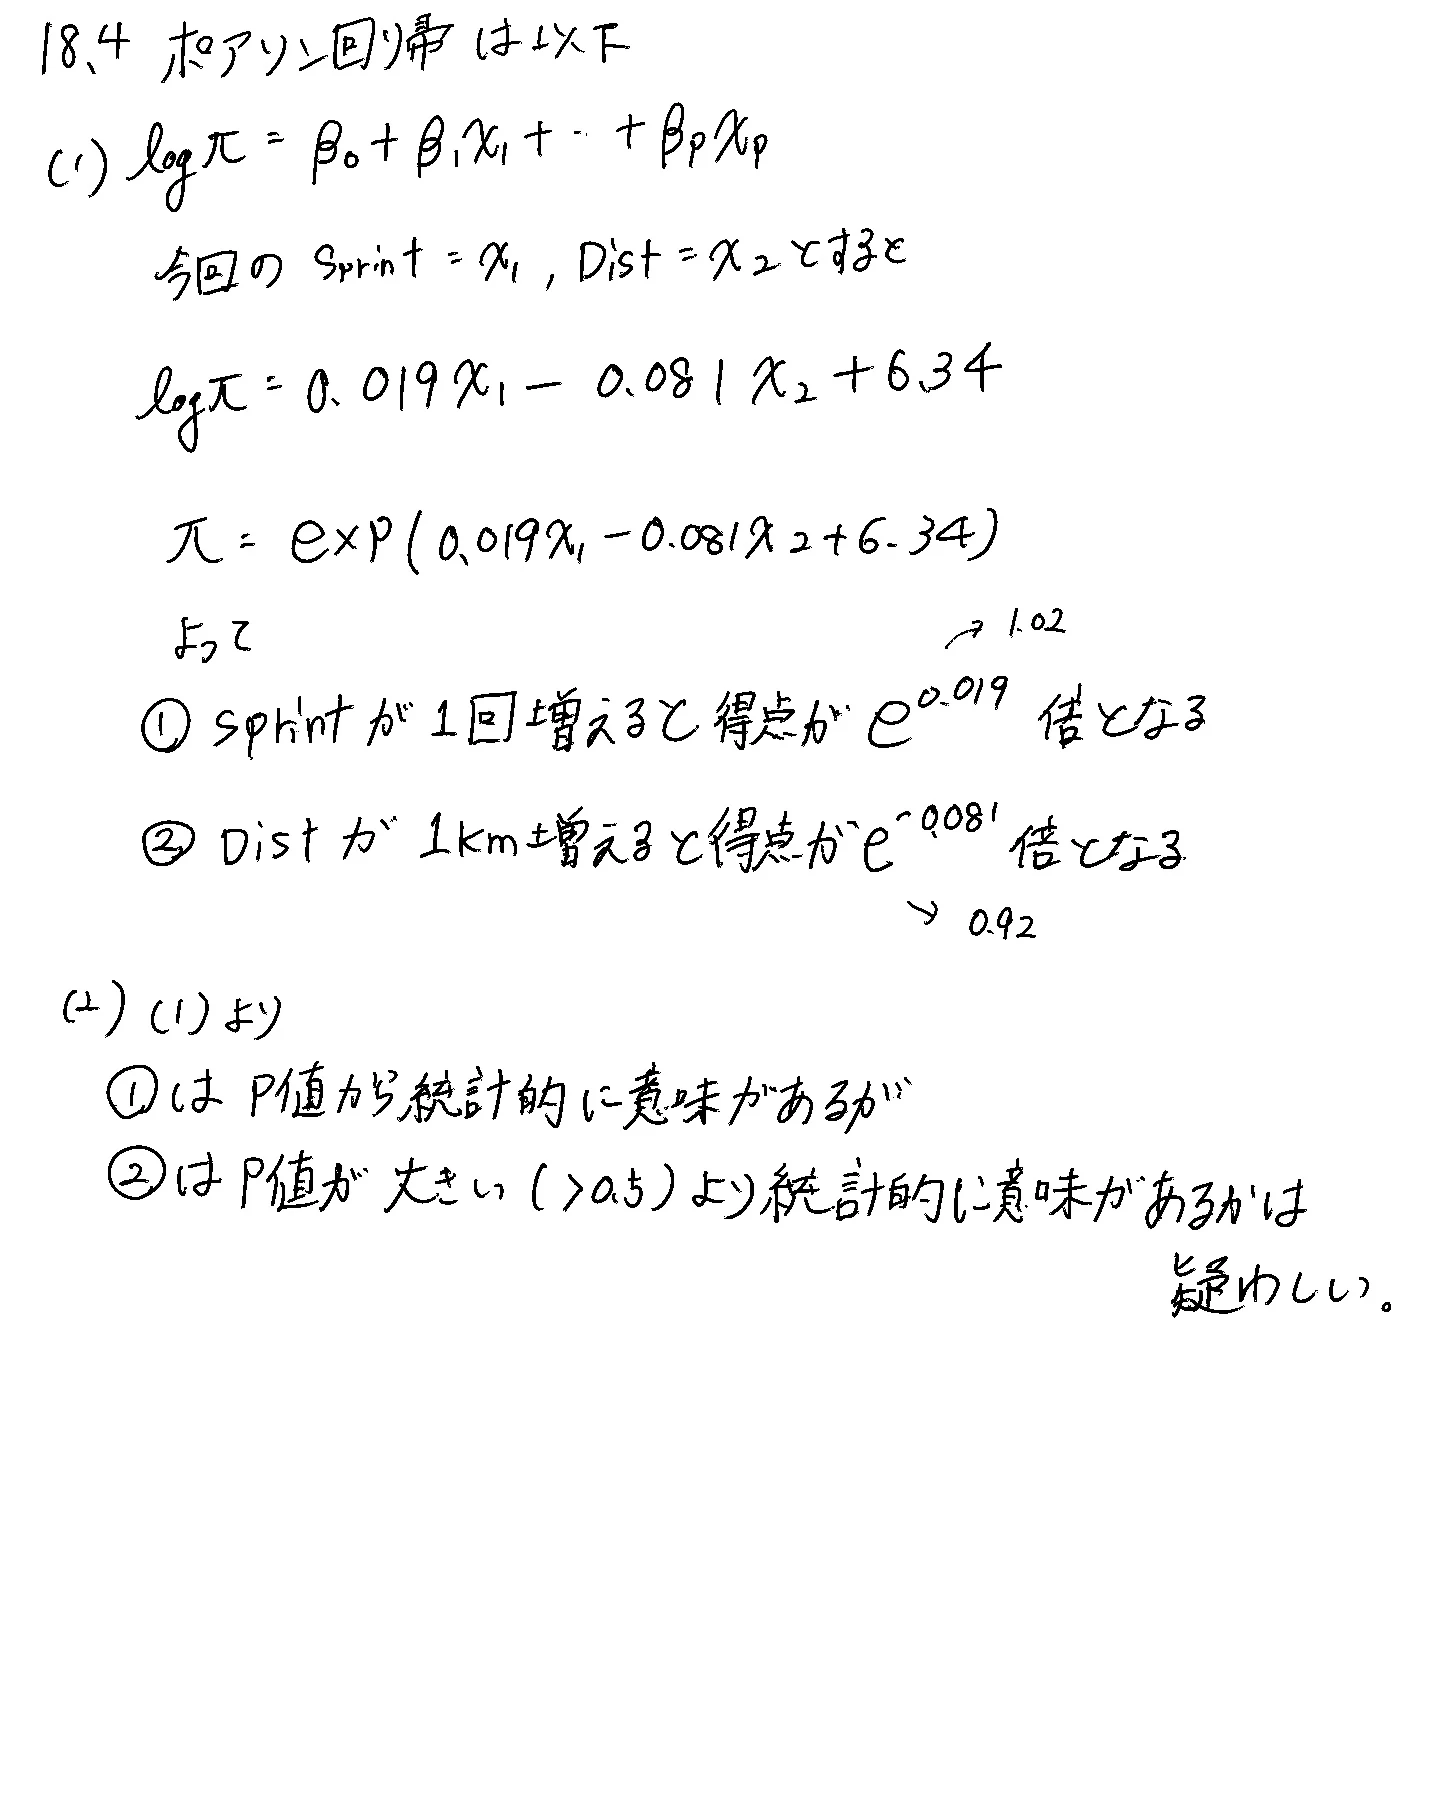 18.4 ポアソン回帰は以下
(1) log π = β₀ + β₁x₁ + ‥ + βₚxₚ
今回の Sprint = x₁ , Dist = x₂ とすると
log π = 0.019x₁ − 0.081x₂ + 6.34
π = exp(0.019x₁ − 0.081x₂ + 6.34)
よって
→ 1.02
① Sprint が 1回増えると得点が e^0.019 倍となる
② Dist が 1km増えると得点が e^-0.081 倍となる
→ 0.92
(2) (1)より
①は P値から統計的に意味があるが
②は P値が大きい (>0.5) より統計的に意味があるかは
疑わしい。